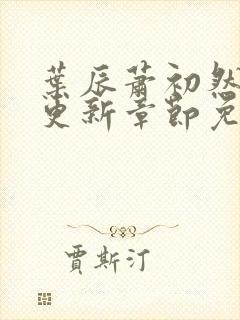 葉辰蕭初然
更新章節免
賈斯汀